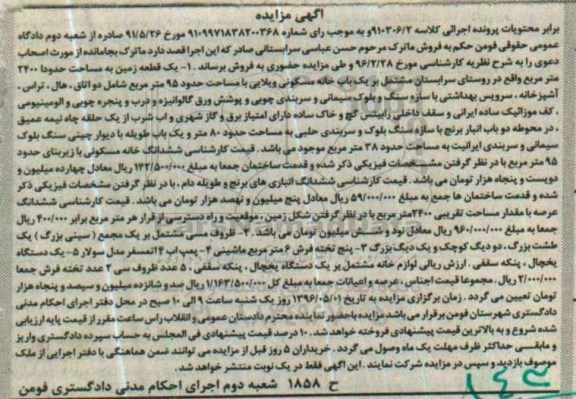 آگهی مزایده
برابر محتویات پرونده اجرائی کلاسه ۹۱۰۳۰۶/۲و به موجب رای شماره ۹۱۰۹۹۷۱۸۳۸۲۰۰۳۶۸ مورخ ۹۱/۵/۲۶ صادره از شعبه دوم دادگاه
عمومی حقوقی فومن حکم به فروش ماترک مرحوم حسن عباسی سرابستانی صادر که این اجرا قصد دارد ماترک بجامانده از مورث اصحاب
دعوی را به شرح نظریه کارشناسی مورخ ۹۶/۲/۲۸ و طی مزایده حضوری به فروش برساند . ۱- یک قطعه زمین به مساحت حدودا ۲۴۰۰
متر مربع واقع در روستای سرابستان مشتمل بر یک باب خانه مسکونی ویلایی با مساحت حدود ۹۵ متر مربع شامل دو اتاق ، هال ، تراس ،
آشپزخانه ، سرویس بهداشتی با سازه سنگ و بلوک سیمانی و سربندی چوبی و پوشش ورق گالوانیزه و درب و پنجره چوبی و آلومینیومی
، کف موزائیک ساده ایرانی و سقف داخلی رابیتس گچ و خاک ساده دارای امتیاز برق و گاز شهری و آب شرب از یک حلقه چاه نیمه عمیق
، در محوطه دو باب انبار برنج با سازه سنگ بلوک و سربندی حلبی به مساحت حدود ۸۰ متر و یک باب طویله با دیوار چینی سنگ بلوک
سیمانی و سربندی ایرانیت به مساحت حدود ۳۸ متر مربع موجود می باشد . قیمت کارشناسی ششدانگ خانه مسکونی با زیربنای حدود
۹۵ متر مربع با در نظر گرفتن مشخصات فیزیکی ذکر شده و قدمت ساختمان جمعا به مبلغ ۱۴۲/۵۰۰/۰۰۰ ریال معادل چهارده میلیون و
دویست و پنجاه هزار تومان می باشد . قیمت کارشناسی ششدانگ انباری های برنج و طویله دام ، با در نظر گرفتن مشخصات فیزیکی ذکر
شده و قدمت ساختمان ها جمع به مبلغ ۵۹/۰۰۰/۰۰۰ ریال معادل پنج میلیون و نهصد هزار تومان می باشد . قیمت کارشناسی ششدانگ
عرصه با مقدار مساحت تقریبی ۲۴۰۰متر مربع با در نظر گرفتن شکل زمین ، موقعیت و راه دسترسی از قرار هر متر مربع برابر ۴۰۰/۰۰۰ ریال
جمعا به مبلغ ۹۶۰/۰۰۰/۰۰۰ ریال معادل نود و شش میلیون تومان می باشد . ۲- ظروف مسی مشتمل بر یک مجمع ( سینی بزرگ ) یک
طشت بزرگ ، دو دیگ کوچک و یک دیگ بزرگ ۳- پنج تخته فرش ۶ متر مربع ماشینی ۴- پمپ آب ۱۴تمسفر مدل سولار ۵- یک دستگاه
یخچال ، پنکه سقفی . ارزش ریالی لوازم خانه مشتمل بر یک دستگاه یخچال ، پنکه سقفی ، ۵ عدد ظروف سی ۲ عدد تخته فرش جمعا
۲/۰۰۰/۰۰۰ ریال . مجموعا قیمت اجناس ، عرصه و اعیانات جمعا به مبلغ کل ۱/۱۶۳/۵۰۰/۰۰۰ ریال صد و شانزده میلیون و سیصد و پنجاه هزار
تومان تعیین می گردد . زمان برگزاری مزایده به تاریخ ۱۳۹۶/۰۵/۰۱ روز یک شنبه ساعت ۹ الی ۱۰ صبح در محل دفتر اجرای احکام مدنی
دادگستری شهرستان فومن برقرار می باشد مزایده باحضور نماینده محترم دادستان عمومی و انقلاب راس ساعت مقرر از قیمت پایه ارزیابی
شده شروع و به بالاترین قیمت پیشنهادی فروخته خواهد شد . ۱۰ درصد قیمت پیشنهادی فی المجلس به حساب سپرده دادگستری واریز
و مابقی حداکثر ظرف مهلت یک ماه وصول می گردد . خریداران ۵ روز قبل از مزایده می توانند ضمن هماهنگی با دفتر اجرایی از ملک
موصوف بازدید و سپس در مزایده شرکت نمایند . این آگهی فقط در یک نوبت منتشر خواهد شد .
ح ۱۸۵۸ شعبه دوم اجرای احکام مدنی دادگستری فومن